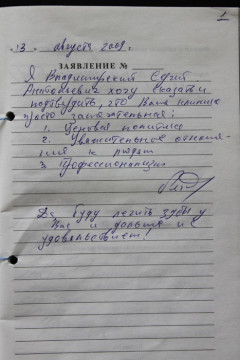 1
13. августа 2009.
ЗАЯВЛЕНИЕ №
Я Владимирский Сергей
Анатольевич хочу сказать и
подтвердить, что Ваша клиника
просто замечательная:
1. Ценовая политика
2. Уважительное отноше-
ния к людям
3. Професионализм
Да, буду лечить зубы у
Вас и дальше с
удовольствием!